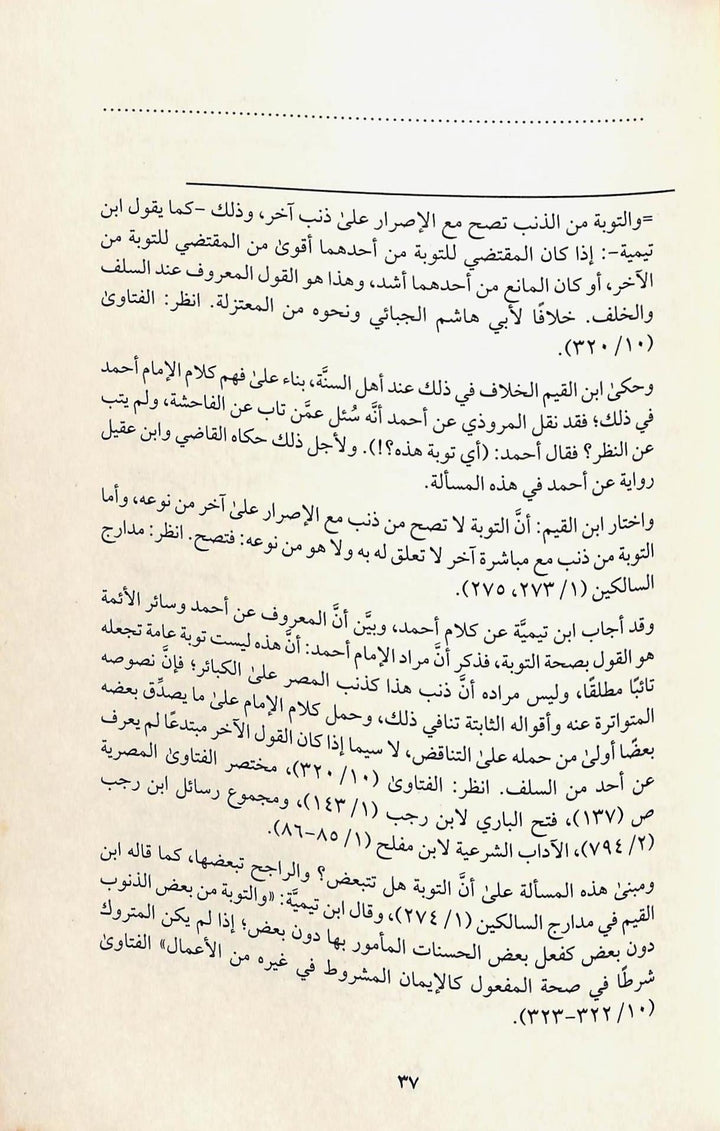 =والتوبة من الذنب تصح مع الإصرار علىٰ ذنب آخر، وذلك -كما يقول ابن
تيمية-: إذا كان المقتضي للتوبة من أحدهما أقوىٰ من المقتضي للتوبة من
الآخر، أو كان المانع من أحدهما أشد، وهذا هو القول المعروف عند السلف
والخلف. خلافًا لأبي هاشم الجبائي ونحوه من المعتزلة. انظر: الفتاوىٰ
(١٠/ ٣٢٠).
وحكىٰ ابن القيم الخلاف في ذلك عند أهل السنَّة، بناء علىٰ فهم كلام الإمام أحمد
في ذلك؛ فقد نقل المروذي عن أحمد أنَّه سُئل عمَّن تاب عن الفاحشة، ولم يتب
عن النظر؟ فقال أحمد: (أي توبة هذه؟!). ولأجل ذلك حكاه القاضي وابن عقيل
رواية عن أحمد في هذه المسألة.
واختار ابن القيم: أنَّ التوبة لا تصح من ذنب مع الإصرار علىٰ آخر من نوعه، وأما
التوبة من ذنب مع مباشرة آخر لا تعلق له به ولا هو من نوعه: فتصح. انظر: مدارج
السالكين (١/ ٢٧٣، ٢٧٥).
وقد أجاب ابن تيميَّة عن كلام أحمد، وبيَّن أنَّ المعروف عن أحمد وسائر الأئمة
هو القول بصحة التوبة، فذكر أنَّ مراد الإمام أحمد: أنَّ هذه ليست توبة عامة تجعله
تائبًا مطلقًا، وليس مراده أنَّ ذنب هذا كذنب المصر علىٰ الكبائر؛ فإنَّ نصوصه
المتواترة عنه وأقواله الثابتة تنافي ذلك، وحمل كلام الإمام علىٰ ما يصدِّق بعضه
بعضًا أولىٰ من حمله علىٰ التناقض، لا سيما إذا كان القول الآخر مبتدعًا لم يعرف
عن أحد من السلف. انظر: الفتاوىٰ (١٠/ ٣٢٠)، مختصر الفتاوىٰ المصرية
ص (١٣٧)، فتح الباري لابن رجب (١/ ١٤٣)، ومجموع رسائل ابن رجب
(٢/ ٧٩٤)، الآداب الشرعية لابن مفلح (١/ ٨٥-٨٦).
ومبنىٰ هذه المسألة علىٰ أنَّ التوبة هل تتبعض؟ والراجح تبعضها، كما قاله ابن
القيم في مدارج السالكين (١/ ٢٧٤)، وقال ابن تيميَّة: «والتوبة من بعض الذنوب
دون بعض كفعل بعض الحسنات المأمور بها دون بعض؛ إذا لم يكن المتروك
شرطًا في صحة المفعول كالإيمان المشروط في غيره من الأعمال» الفتاوىٰ
(١٠/ ٣٢٢-٣٢٣).
٣٧